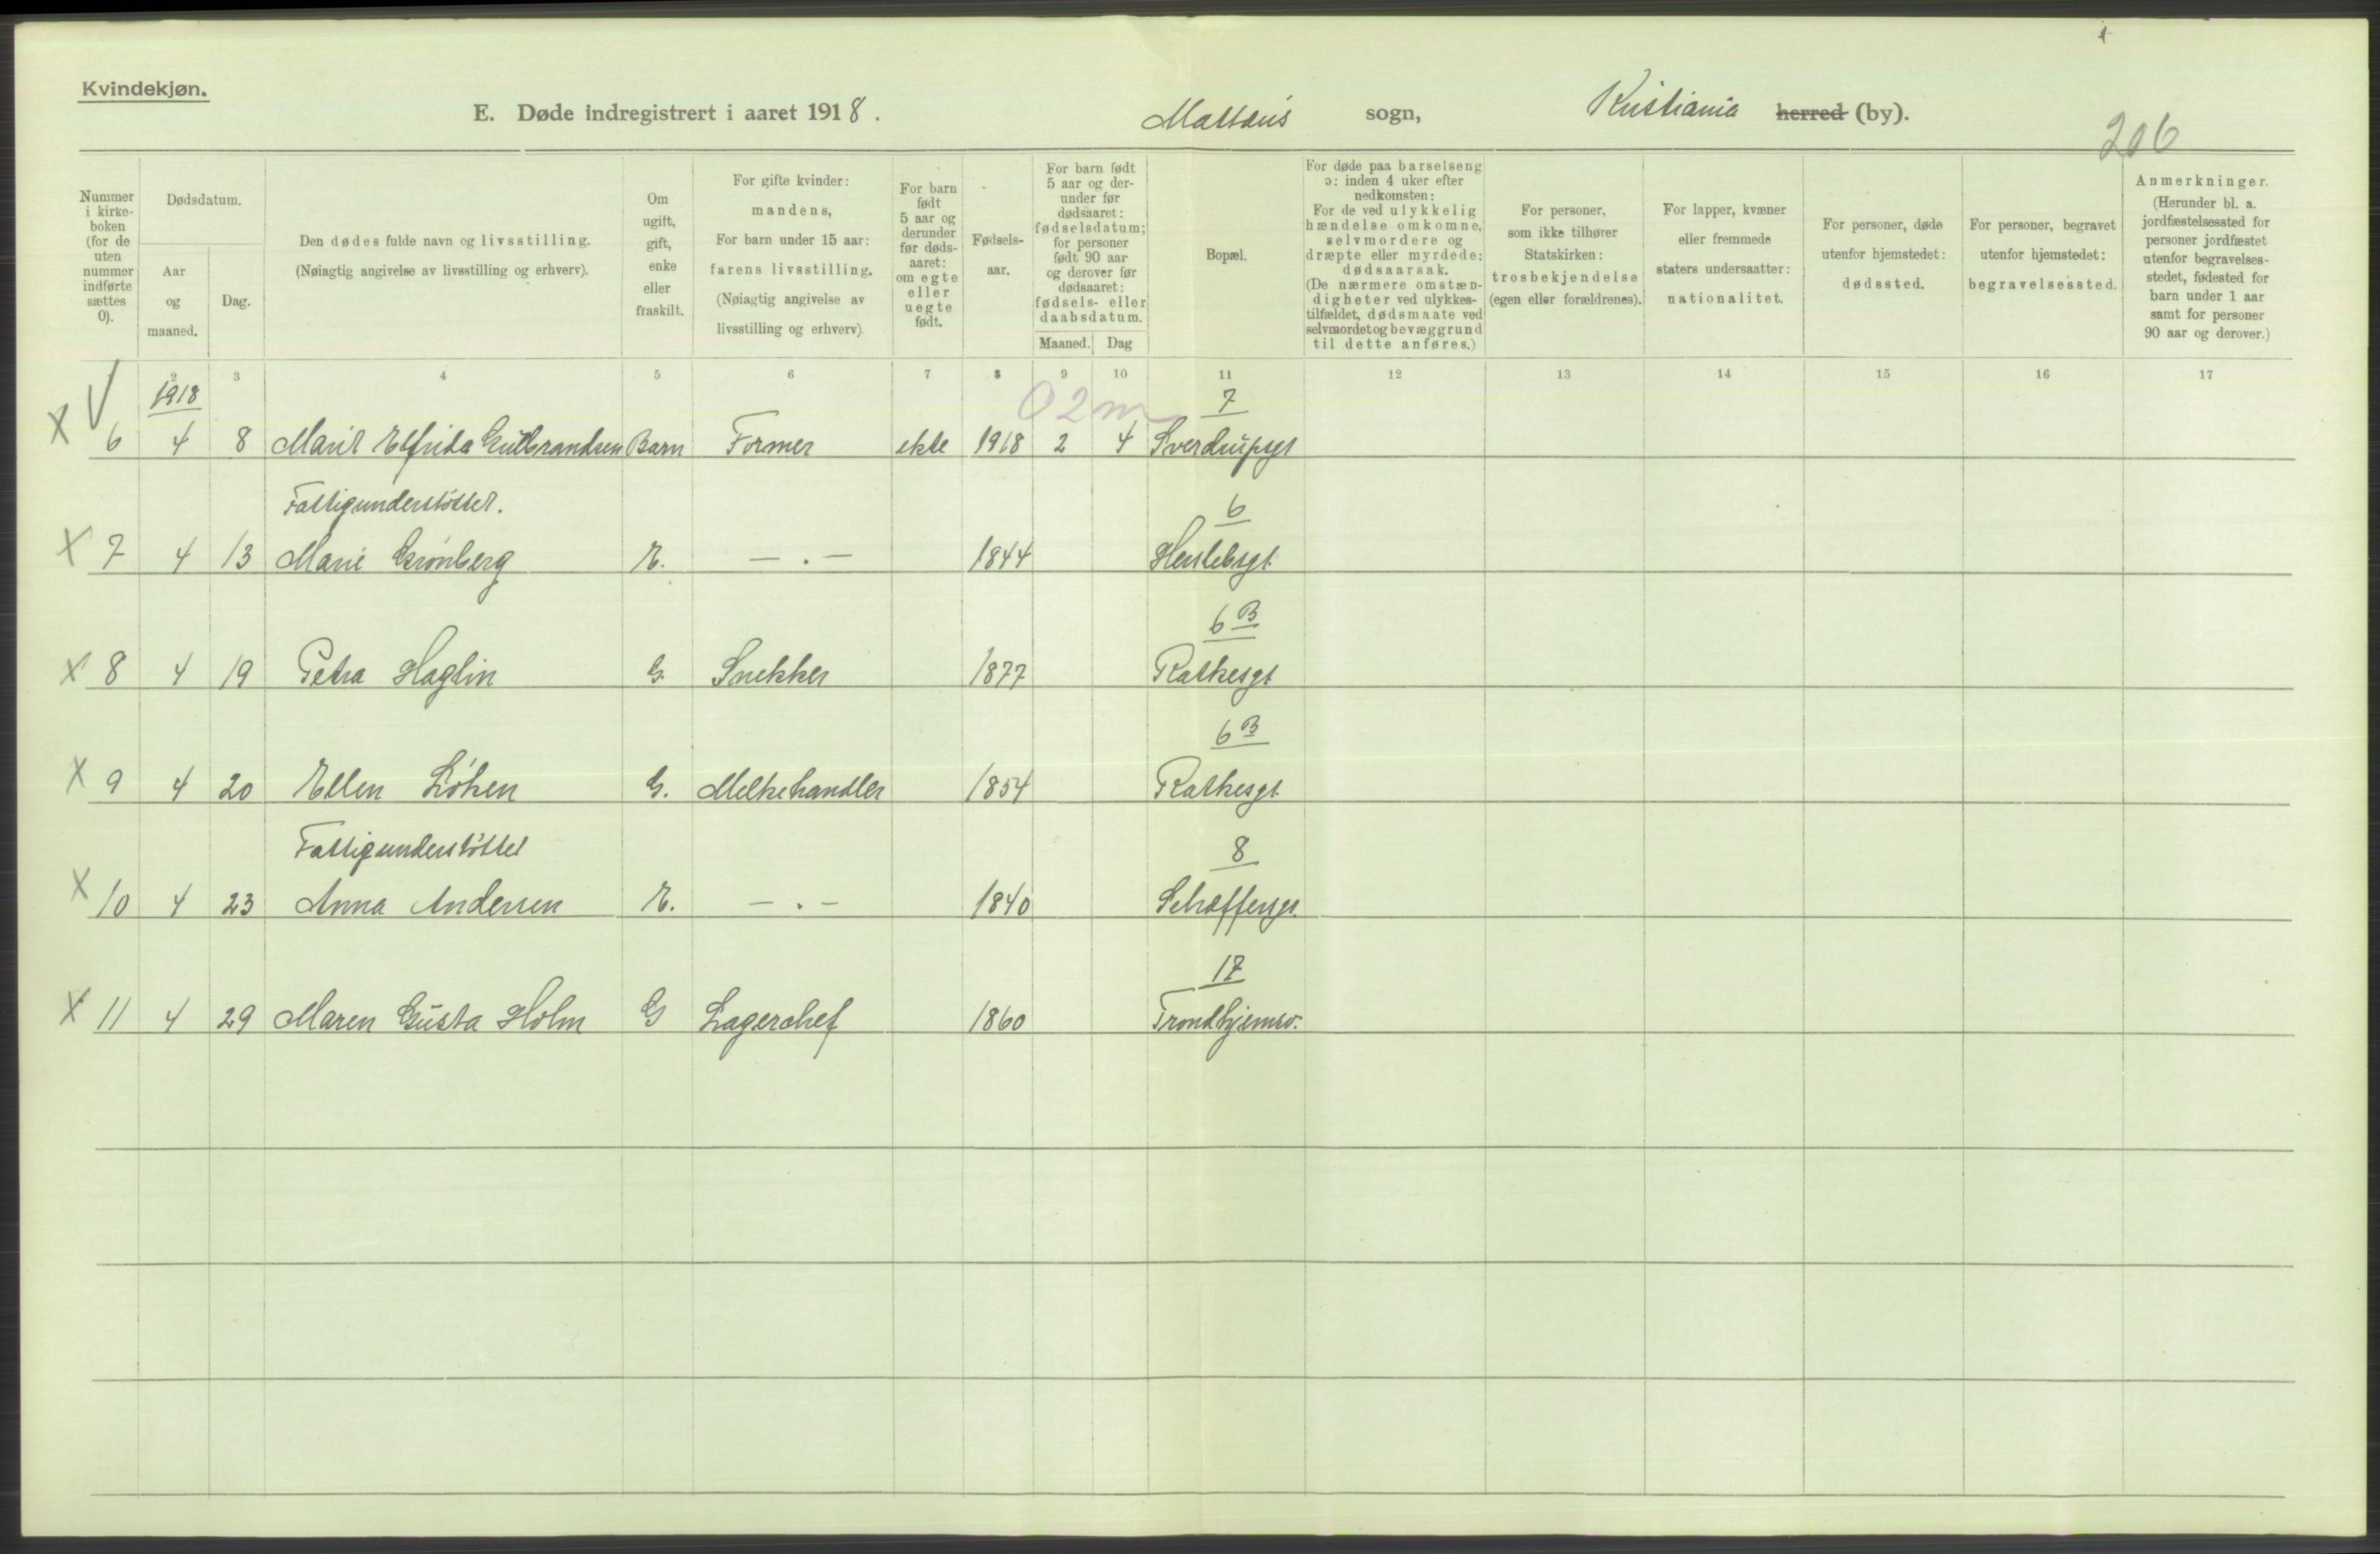 Kvindekjøn.
E. Døde indregistrert i aaret 1918. Mattæus sogn, Kristiania herred (by).
206
Nummer i kirkeboken (for de uten nummer indførte sættes 0).
Dødsdatum.
Aar og maaned.
Dag.
Den dødes fulde navn og livsstilling.
(Nøiagtig angivelse av livsstilling og erhverv).
Om ugift, gift, enke eller fraskilt.
For gifte kvinder: mandens,
For barn under 15 aar: farens livsstilling.
(Nøiagtig angivelse av livsstilling og erhverv)
For barn født 5 aar og derunder før dødsaaret: om egte eller uegte født.
Fødselsaar.
For barn født 5 aar og derunder før dødsaaret: fødselsdatum; for personer født 90 aar og derover før dødsaaret: fødsels- eller daabsdatum.
Maaned. Dag
Bopæl.
For døde paa barselseng ɔ: inden 4 uker efter nedkomsten: For de ved ulykkelig hændelse omkomne, selvmordere og dræpte eller myrdede: dødsaarsak. (De nærmere omstændigheter ved ulykkestilfældet, dødsmaate ved selvmordet og bevæggrund til dette anføres.)
For personer, som ikke tilhører Statskirken: trosbekjendelse (egen eller forældrenes).
For lapper, kvæner eller fremmede staters undersaatter: nationalitet.
For personer, døde utenfor hjemstedet: dødssted.
For personer, begravet utenfor hjemstedet: begravelsessted.
Anmerkninger. (Herunder bl. a. jordfæstelsessted for personer jordfæstet utenfor begravelsesstedet, fødested for barn under 1 aar samt for personer 90 aar og derover.)
2 3 4 5 6 7 8 9 10 11 12 13 14 15 16 17
1918 0 2 m 7
X 6 4 8 Marit Elfrida Gulbrandsen Barn Former ekte 1918 2 4 Sverdrupsgt
Fattigunderstöttet. 6
X 7 4 13 Marie Grönberg E. — . — 1844 Herslebsgt.
6 B
X 8 4 19 Petra Haglin G. Snekker 1877 Rathkesgt
6 B
X 9 4 20 Ellen Löken G. Melkehandler 1854 Rathkesgt.
Fattigunderstöttet 8
X 10 4 23 Anna Andersen E. — . — 1840 Schæffersgt.
17
X 11 4 29 Maren Gusta Holm G Lagerchef 1860 Trondhjemsv.